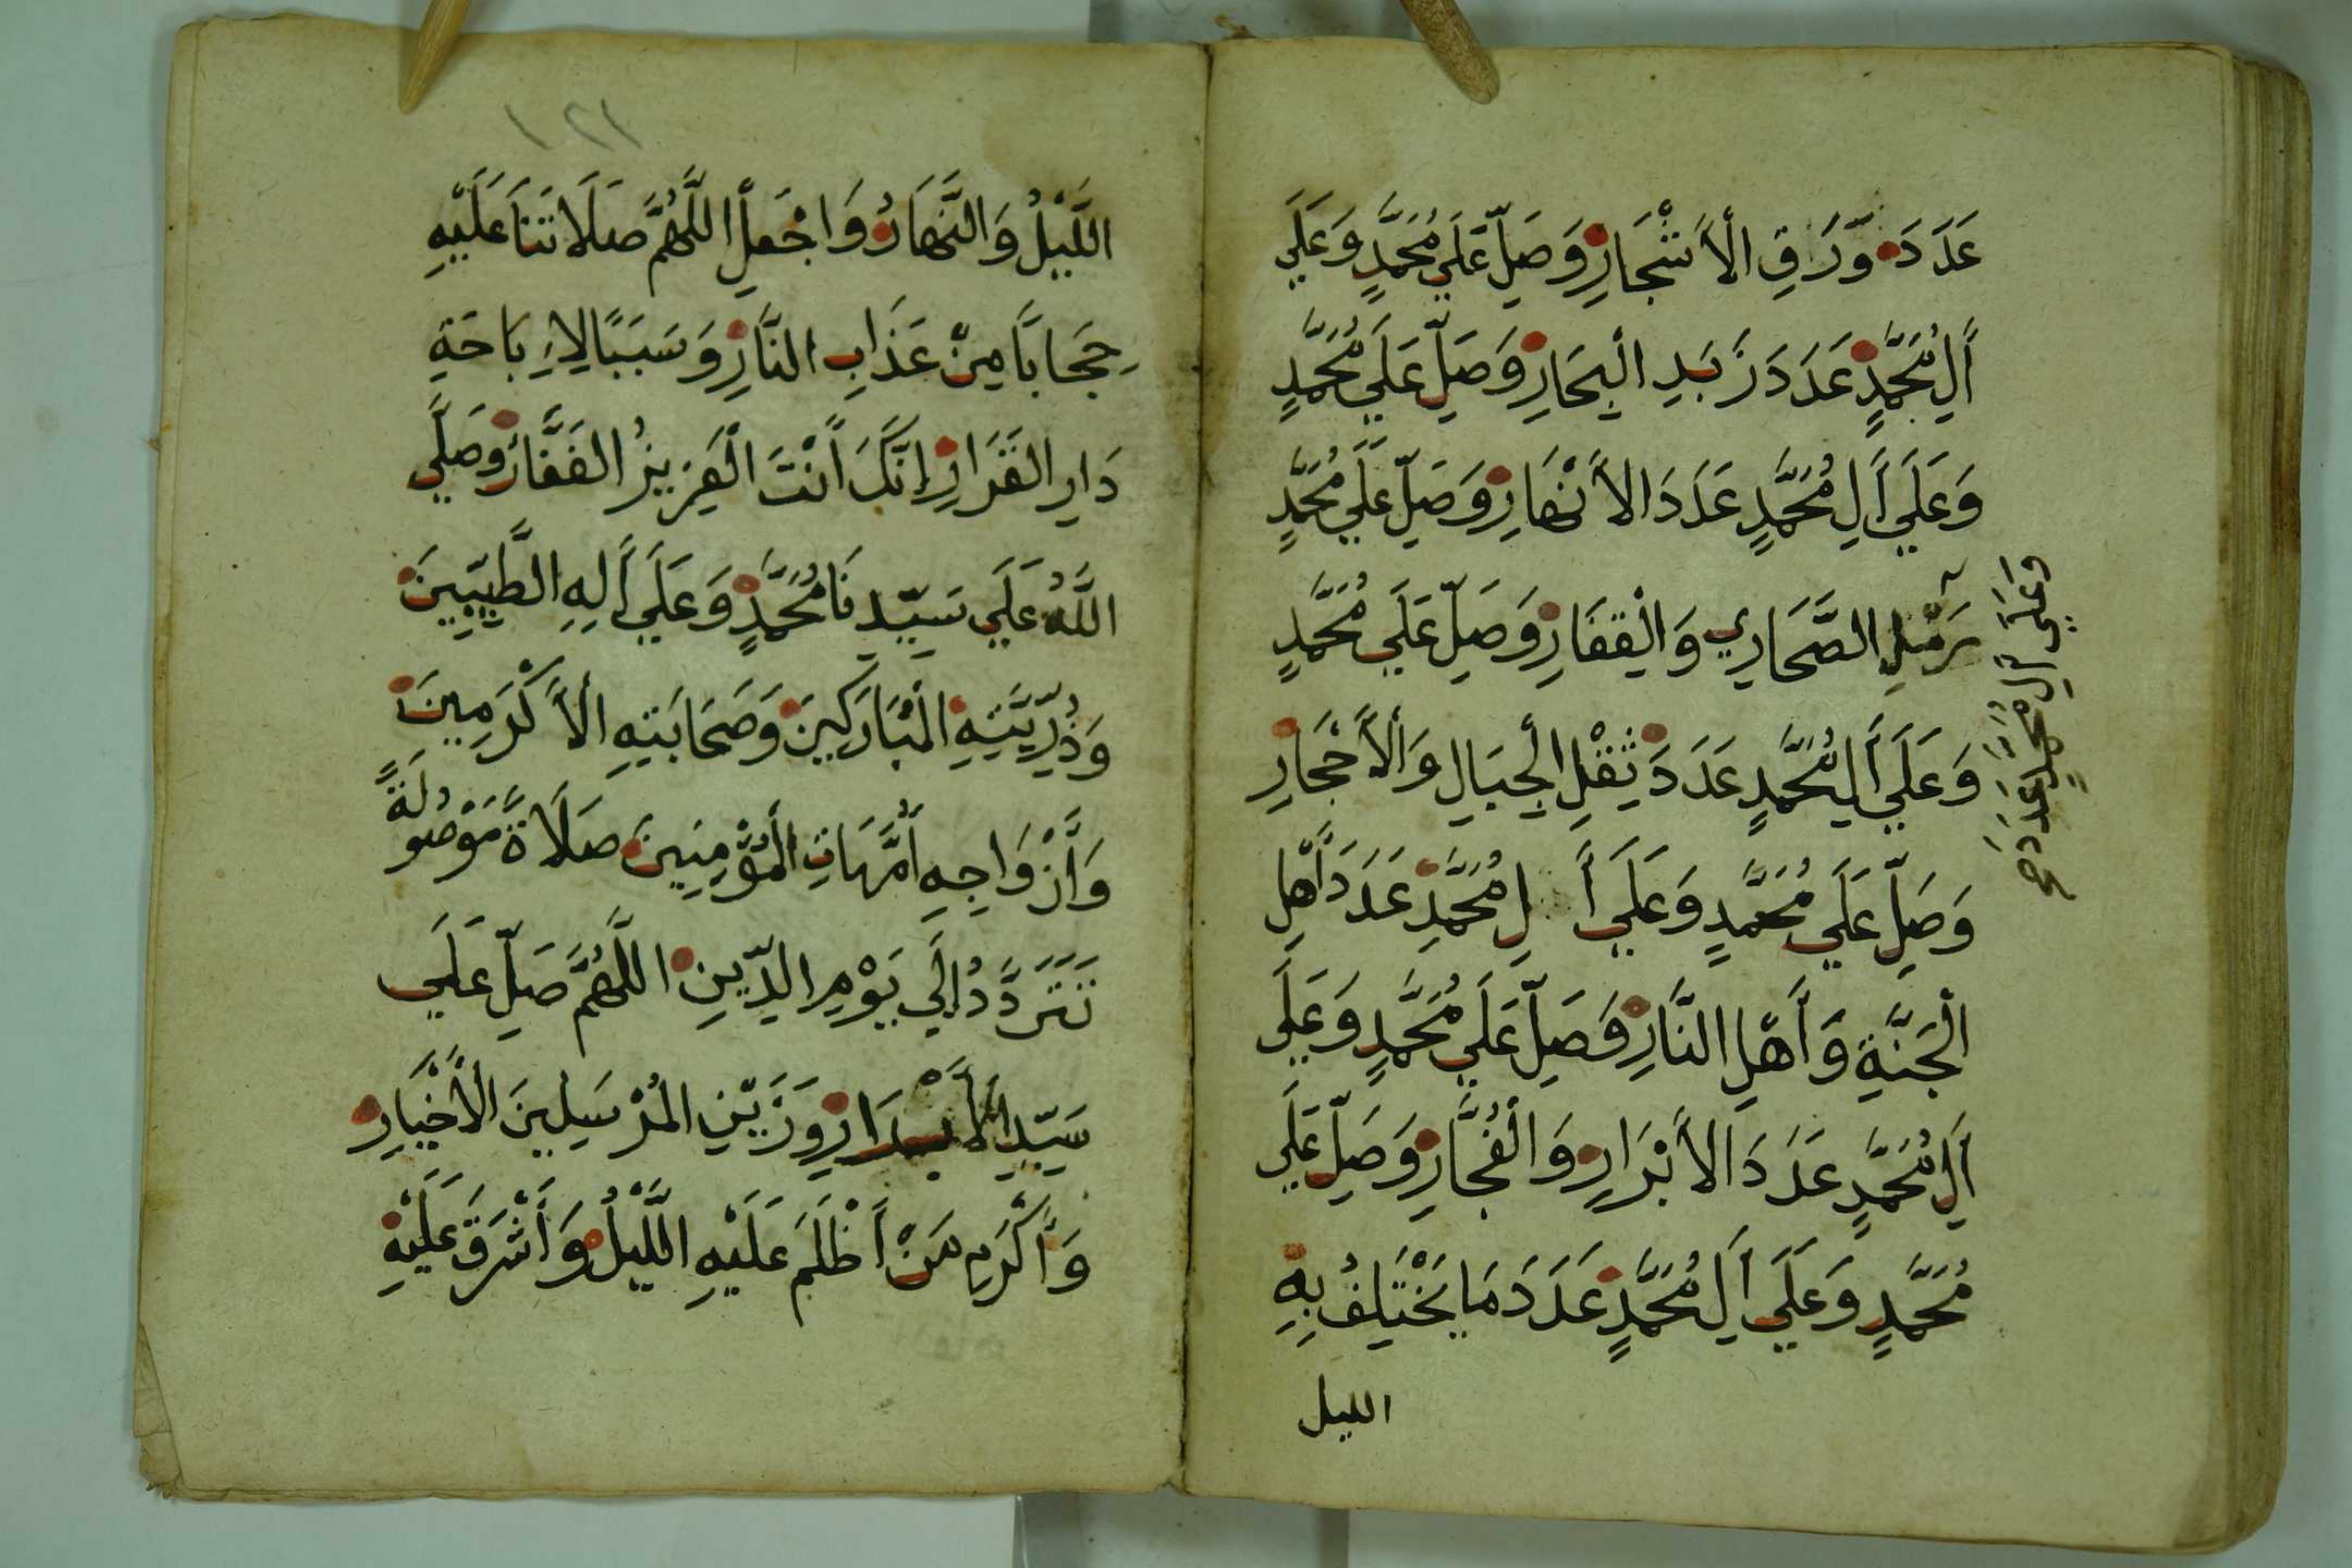 عَدَدَ وَّرَقِ الْأَشْجَارِ وَصَلِّ عَلَي مُحَمَّدٍ وَعَلَي
أَلِ مُحَمَّدٍ عَدَدَ زَبَدِ الْبِحَارِ وَصَلِّ عَلَي مُحَمَّدٍ
وَعَلَي أَلِ مُحَمَّدٍ عَدَدَ الاَنْهَارِ وَصَلِّ عَلَي مُحَمَّدٍ
وَعَلَي اَلِ مُحَمَّدٍ عَدَدَ صح
رَمْلِ الصَّحَارِي وَالْقِفَارِ وَصَلِّ عَلَي مُحَمَّدٍ
وَعَلَي أَلِ مُحَمَّدٍ عَدَدَ ثِقْلِ الْجِبَالِ وَالْأَحْجَارِ
وَصَلِّ عَلَي مُحَمَّدٍ وَعَلَي أَلِ مُحَمَّدٍ عَدَدَ أَهْلِ
الْجَنَّةِ وَأَهْلِ النَّارِ وَصَلِّ عَلَي مُحَمَّدٍ وَعَلَي
اَلِ مُحَمَّدٍ عَدَدَ الاَبْرَارِ وَالْفُجَّارِ وَصَلِّ عَلَي
مُحَمَّدٍ وَعَلَي اَلِ مُحَمَّدٍ عَدَدَ مَا يَخْتَلِفُ بِهِ
الليل
١٢١
اللَّيْلُ وَالنَّهَارُ وَاجْعَلِ اللَّهُمَّ صَلَاتَنَا عَلَيْهِ
حِجَابًا مِنْ عَذَابِ النَّارِ وَسَبَبًا لِاِءِبَاحَةِ
دَارِ القَرَارِ إِنَّكَ أَنْتَ الْعَزِيزُ الغَفَّارُ وَصَلَّي
اللَّهُ عَلَي سَيِّدِنَا مُحَمَّدٍ وَعَلَي أَلِهِ الطَّيِّبِينَ
وَذُرِّيَّتِهِ الْمُبَارَكِينَ وَصَحَابَتِهِ الْأَكْرَمِينَ
وَأَزْوَاجِهِ أُمَّهَاتِ الْمُؤْمِنِينَ صَلَاةً مَوْصُولَةً
تَتَرَدَّدُ إِلَي يَوْمِ الدِّينِ اللَّهُمَّ صَلِّ عَلَي
سَيِّدِ الْأَبْرَارِ وَزَيْنِ الْمُرْسَلِينَ الْأَخْيَارِ
وَأَكْرَمِ مَنْ أَظْلَمَ عَلَيْهِ اللَّيْلُ وَأَشْرَقَ عَلَيْهِ